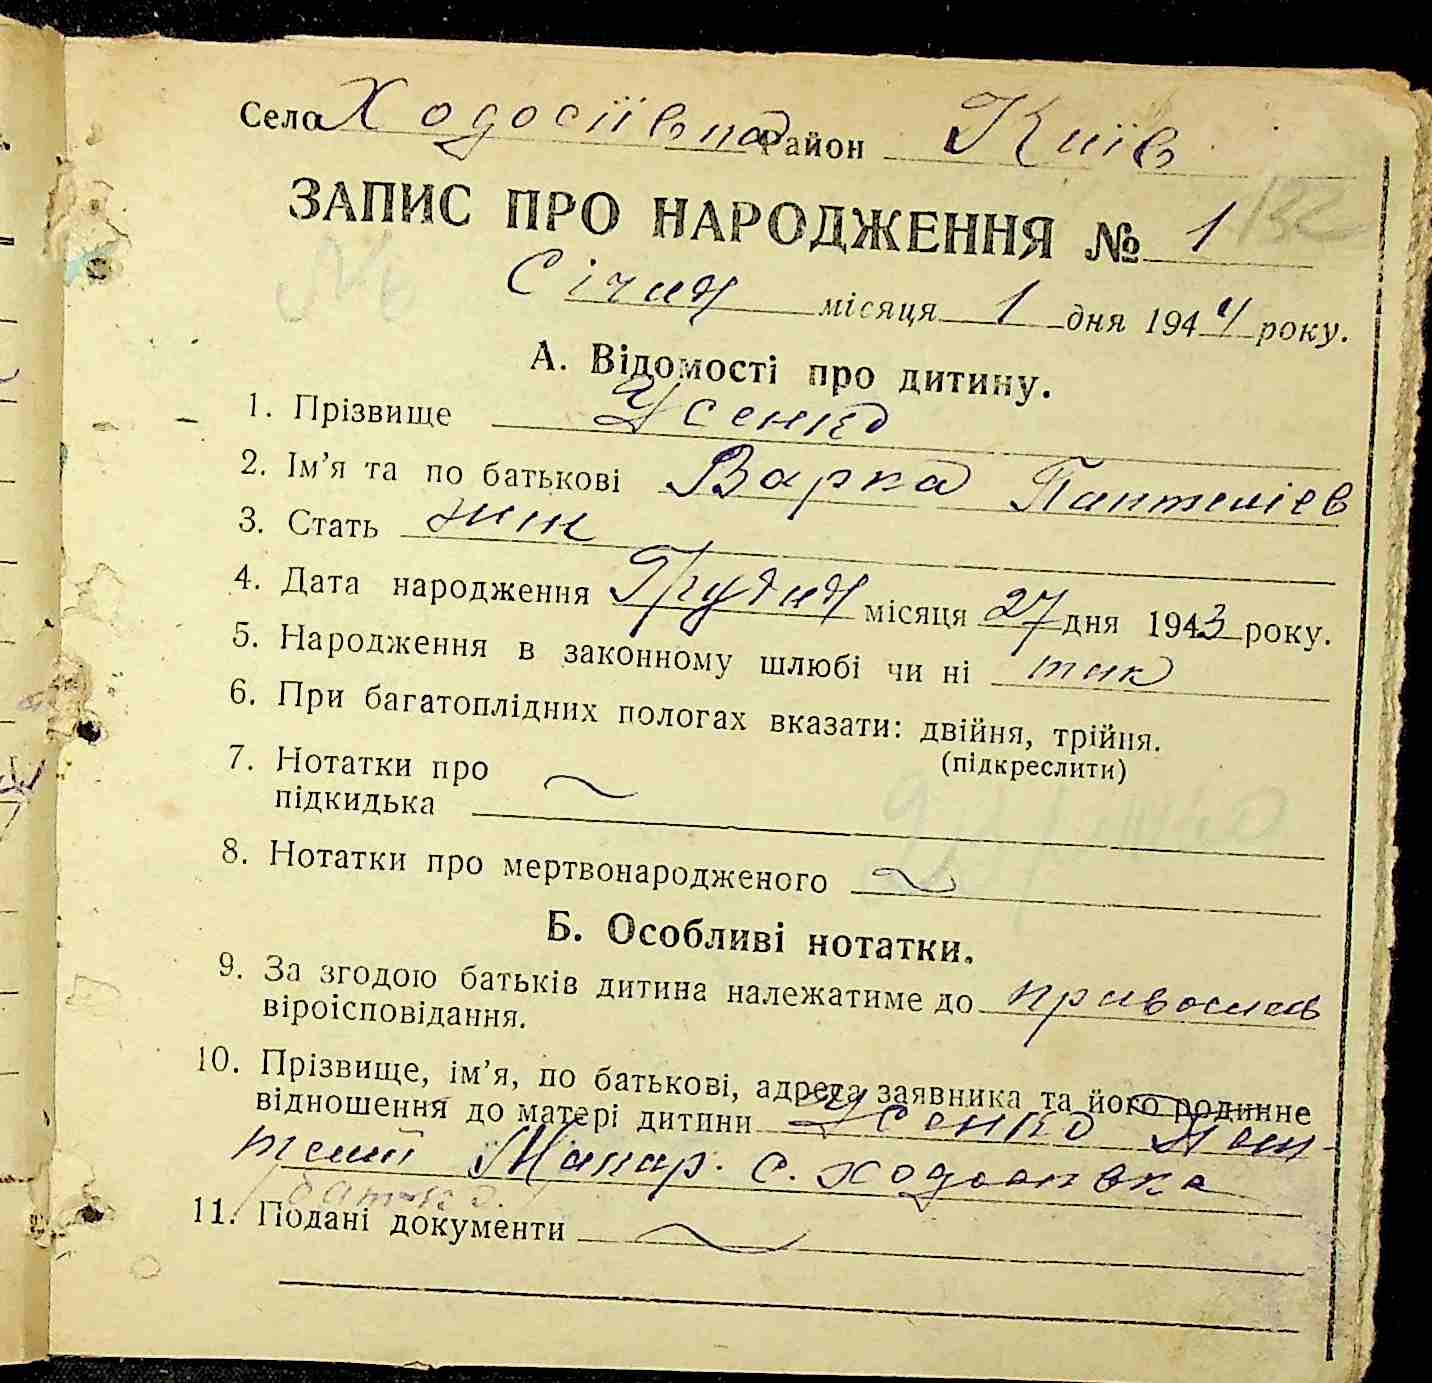 Село Ходосіївка Район Київ
132
ЗАПИС ПРО НАРОДЖЕННЯ № 1
Січня місяця 1 дня 1944 року.
А. Відомості про дитину.
1. Прізвище Усенко
2. Ім'я та по батькові Варка Пантеліев
3. Стать жін
4. Дата народження Грудня місяця 27 дня 1943 року.
5. Народження в законному шлюбі чи ні так
6. При багатоплідних пологах вказати: двійня, трійня.
(підкреслити)
7. Нотатки про
підкидька
8. Нотатки про мертвонародженого
Б. Особливі нотатки.
9. За згодою батьків дитина належатиме до православ
віроісповідання.
10. Прізвище, ім'я, по батькові, адреса заявника та його родинне
відношення до матері дитини Усенко Пан-
телій Макар. с. Ходосівка
батько.
11. Подані документи